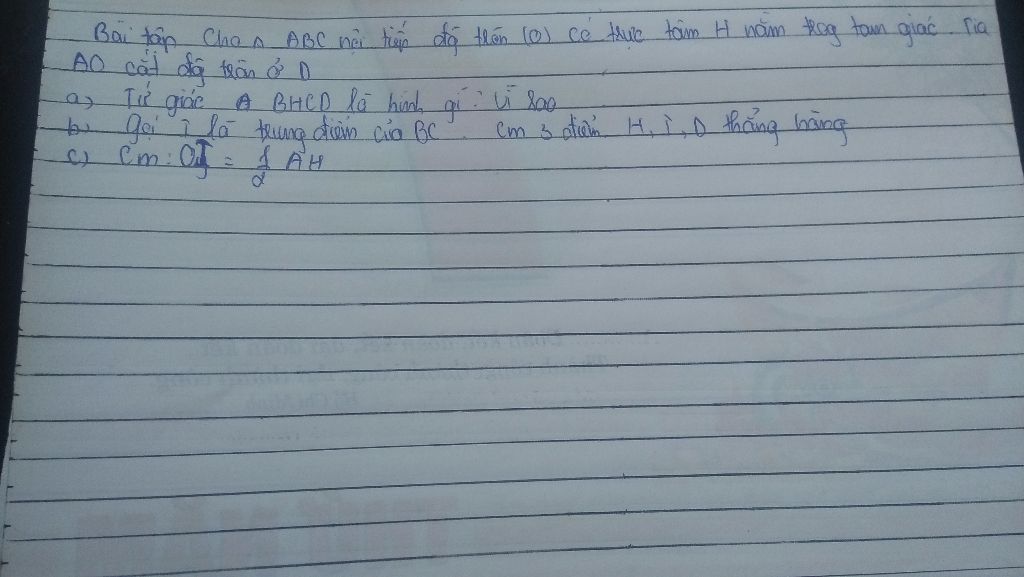 Bài tập Cho Δ ABC nội tiếp đg tròn (O) có trực tâm H nằm trog tam giác. Tia
AO cắt đg tròn ở D
a, Tứ giác BHCD là hình gì? Vì sao
b, Gọi I là trung điểm của BC. Cm 3 điểm H, I, D thẳng hàng
c, Cm: OI = 1/2 AH